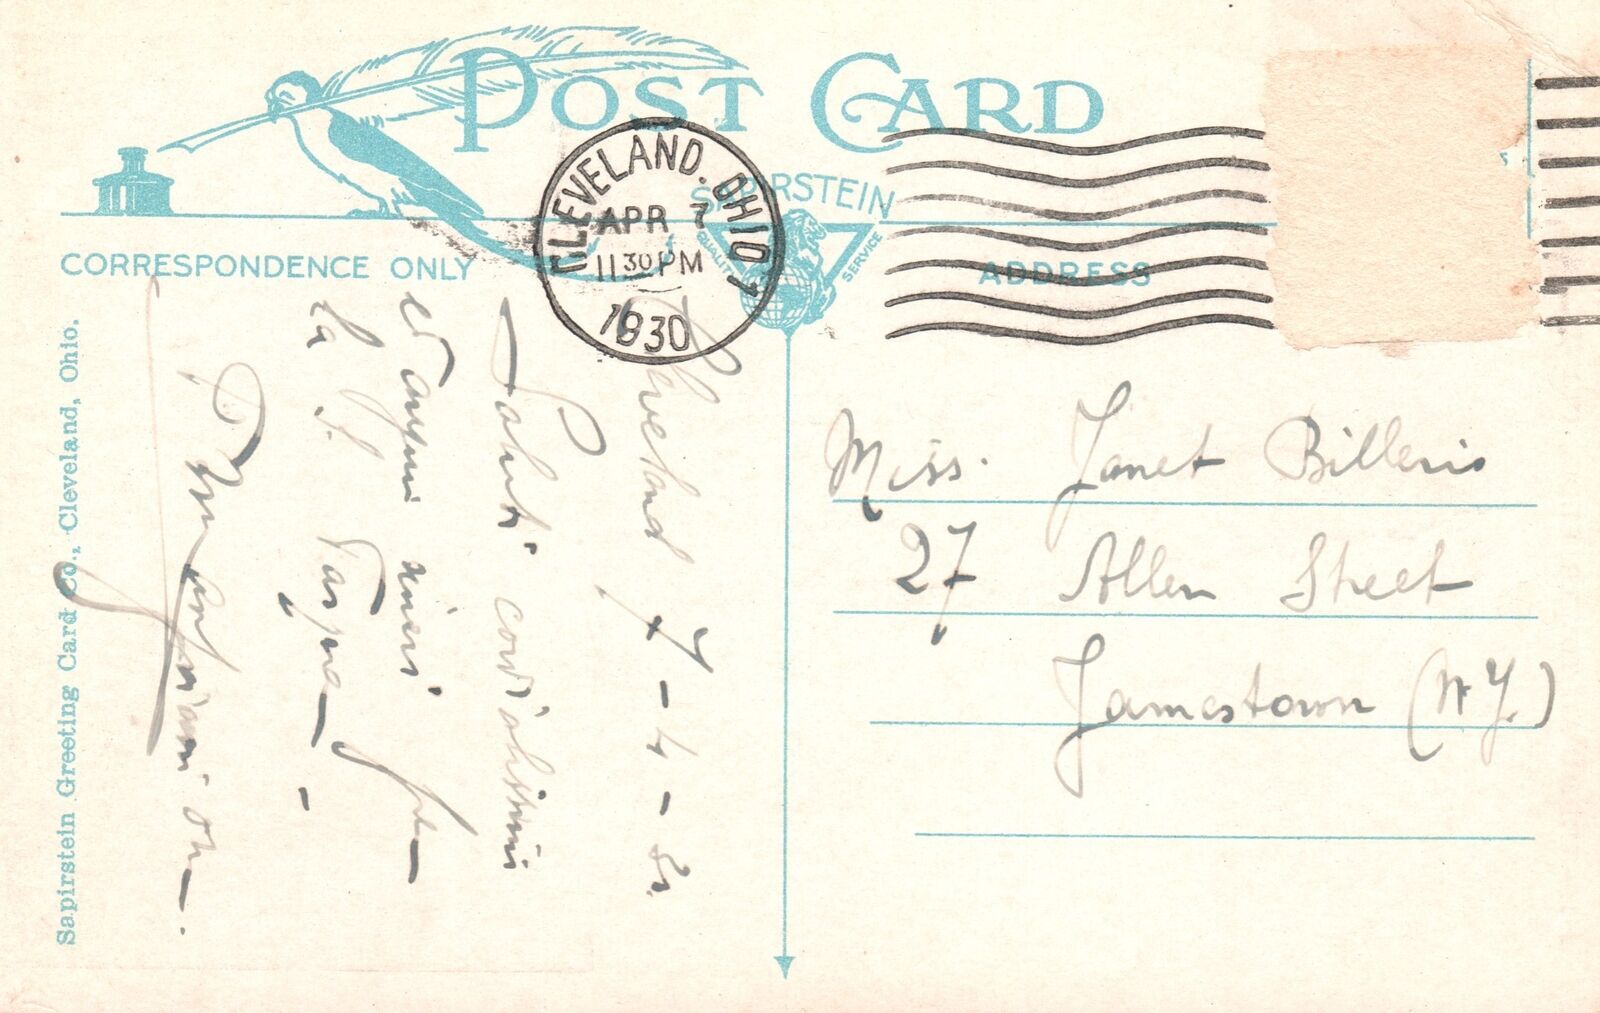 POST CARD
CLEVELAND. OHIO 1
APR 7
11 30 PM
1930
SAPIRSTEIN
QUALITY SERVICE
CORRESPONDENCE ONLY
ADDRESS
Cleveland 7-4-
Saluti cordialissimi
ed auguri per
la S. Pasqua
Miss. Janet Billeris
27 Allen Street
Jamestown (N Y.)
Sapirstein Greeting Card Co., Cleveland, Ohio.